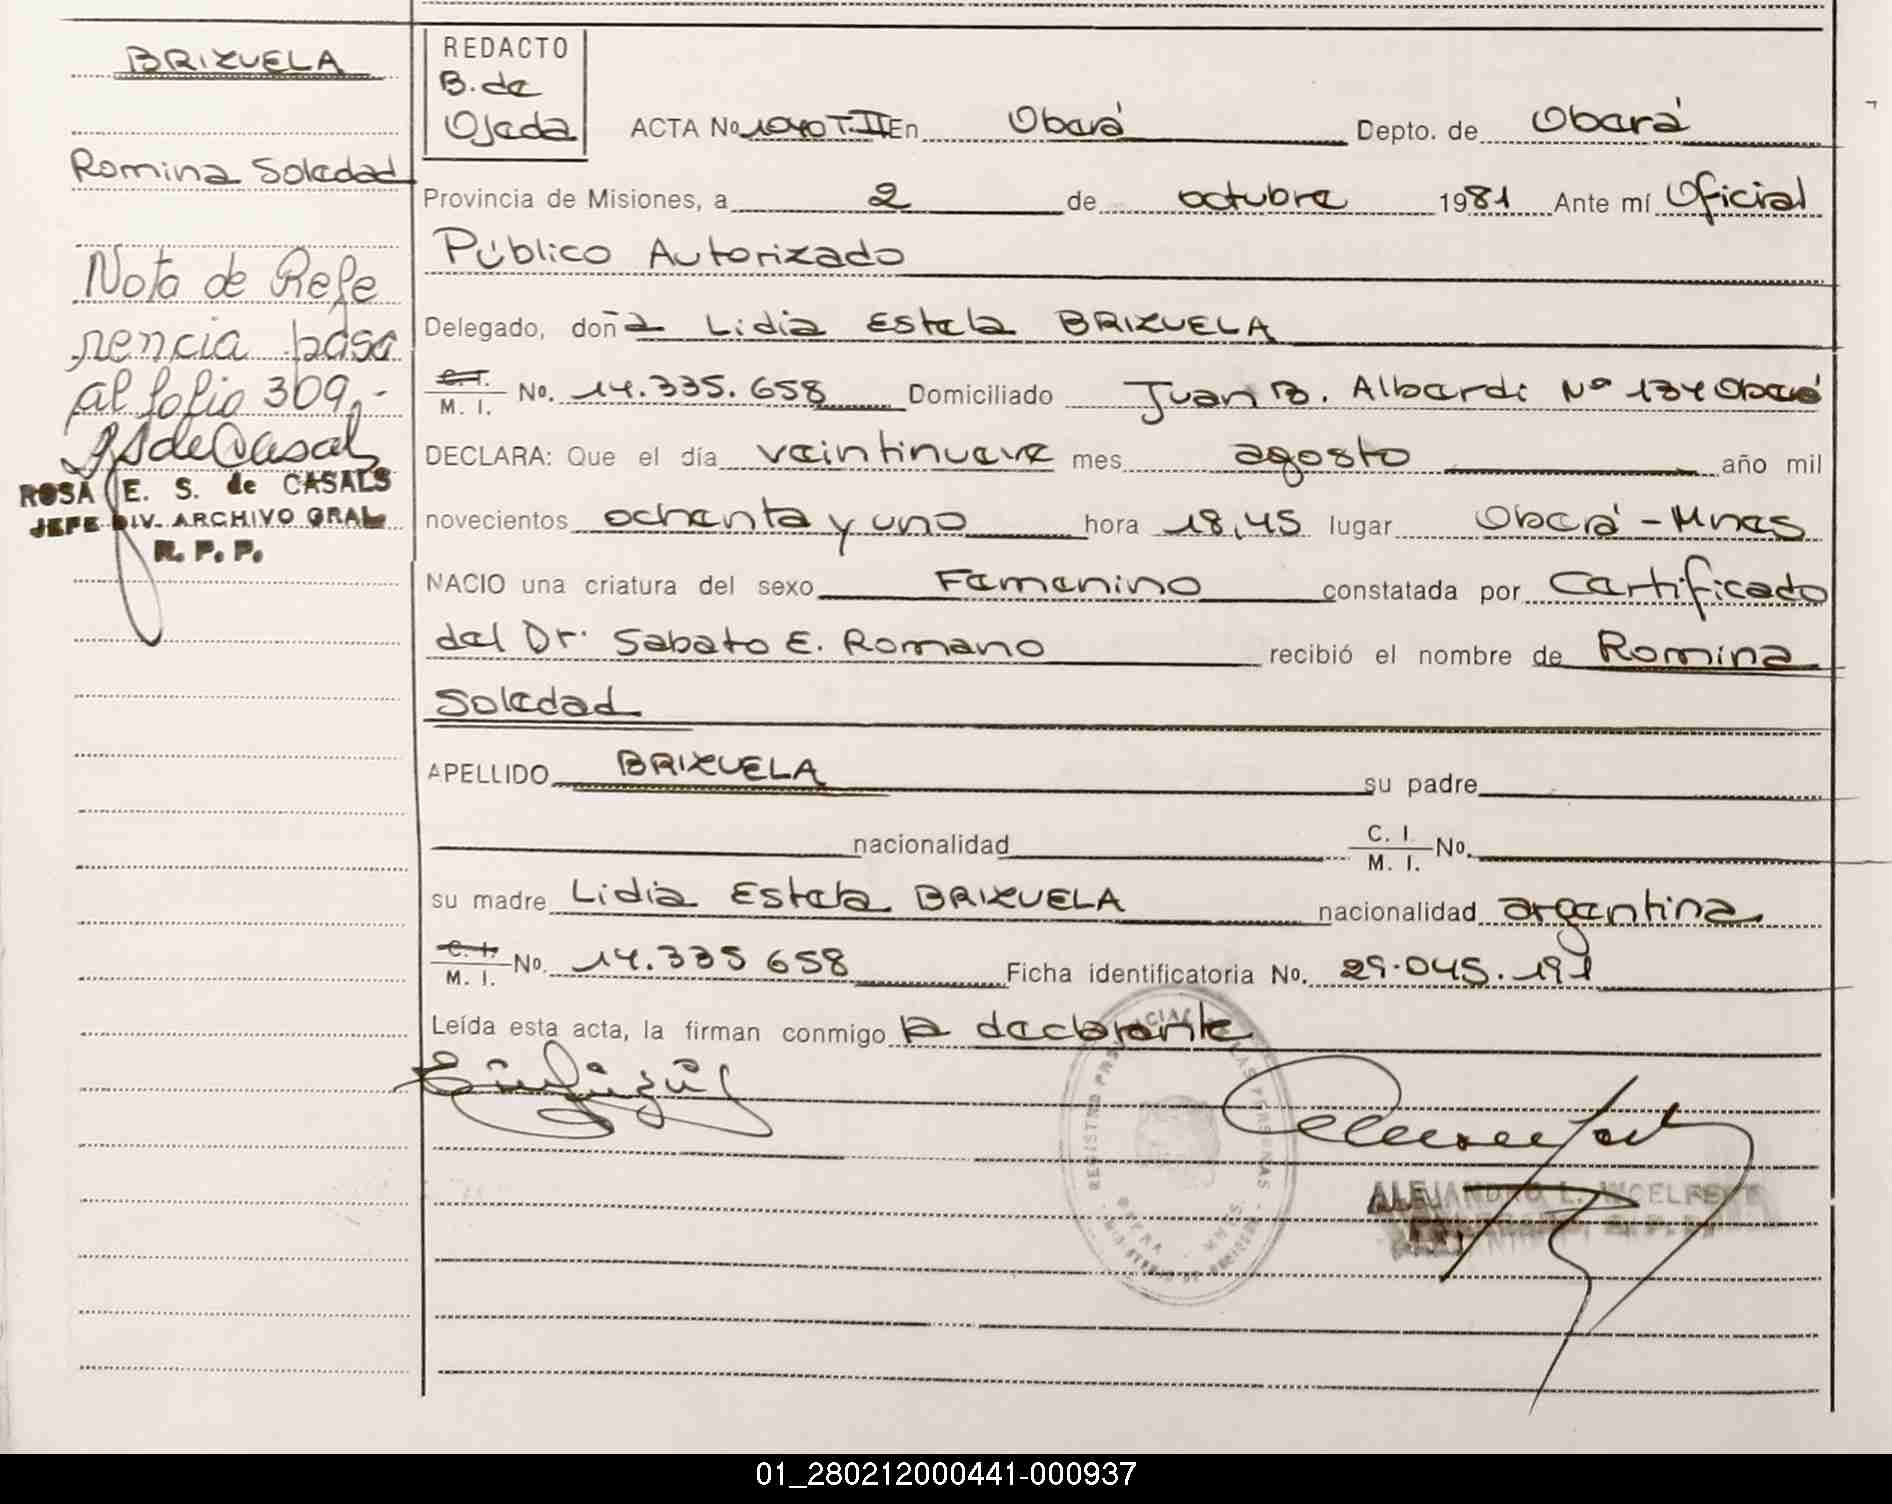 BRIZUELA
Romina Soledad
Nota de Refe
rencia pasa
al folio 309.-
ROSA E. S. de CASALS
JEFE DIV. ARCHIVO GRAL
R. P. P.
REDACTO
B. de
Ojeda
ACTA No 1040 T.II En Oberá Depto. de Oberá
Provincia de Misiones, a 2 de octubre 1981 Ante mí Oficial
Público Autorizado
Delegado, doña Lidia Estela BRIZUELA
C.I. M. I. No. 14.335.658 Domiciliado Juan B. Alberdi Nº 134 Oberá
DECLARA: Que el día veintinueve mes agosto año mil
novecientos ochenta y uno hora 18,45 lugar Oberá - Mnes
NACIO una criatura del sexo Femenino constatada por Certificado
del Dr. Sabato E. Romano recibió el nombre de Romina
Soledad
APELLIDO BRIZUELA su padre
nacionalidad C. I. M. I. No.
su madre Lidia Estela BRIZUELA nacionalidad argentina
C. I. M. I. No. 14.335 658 Ficha identificatoria No. 29.045.191
Leída esta acta, la firman conmigo la declarante
REGISTRO PROVINCIAL DE LAS PERSONAS
ALEJANDRO L.
01_280212000441-000937